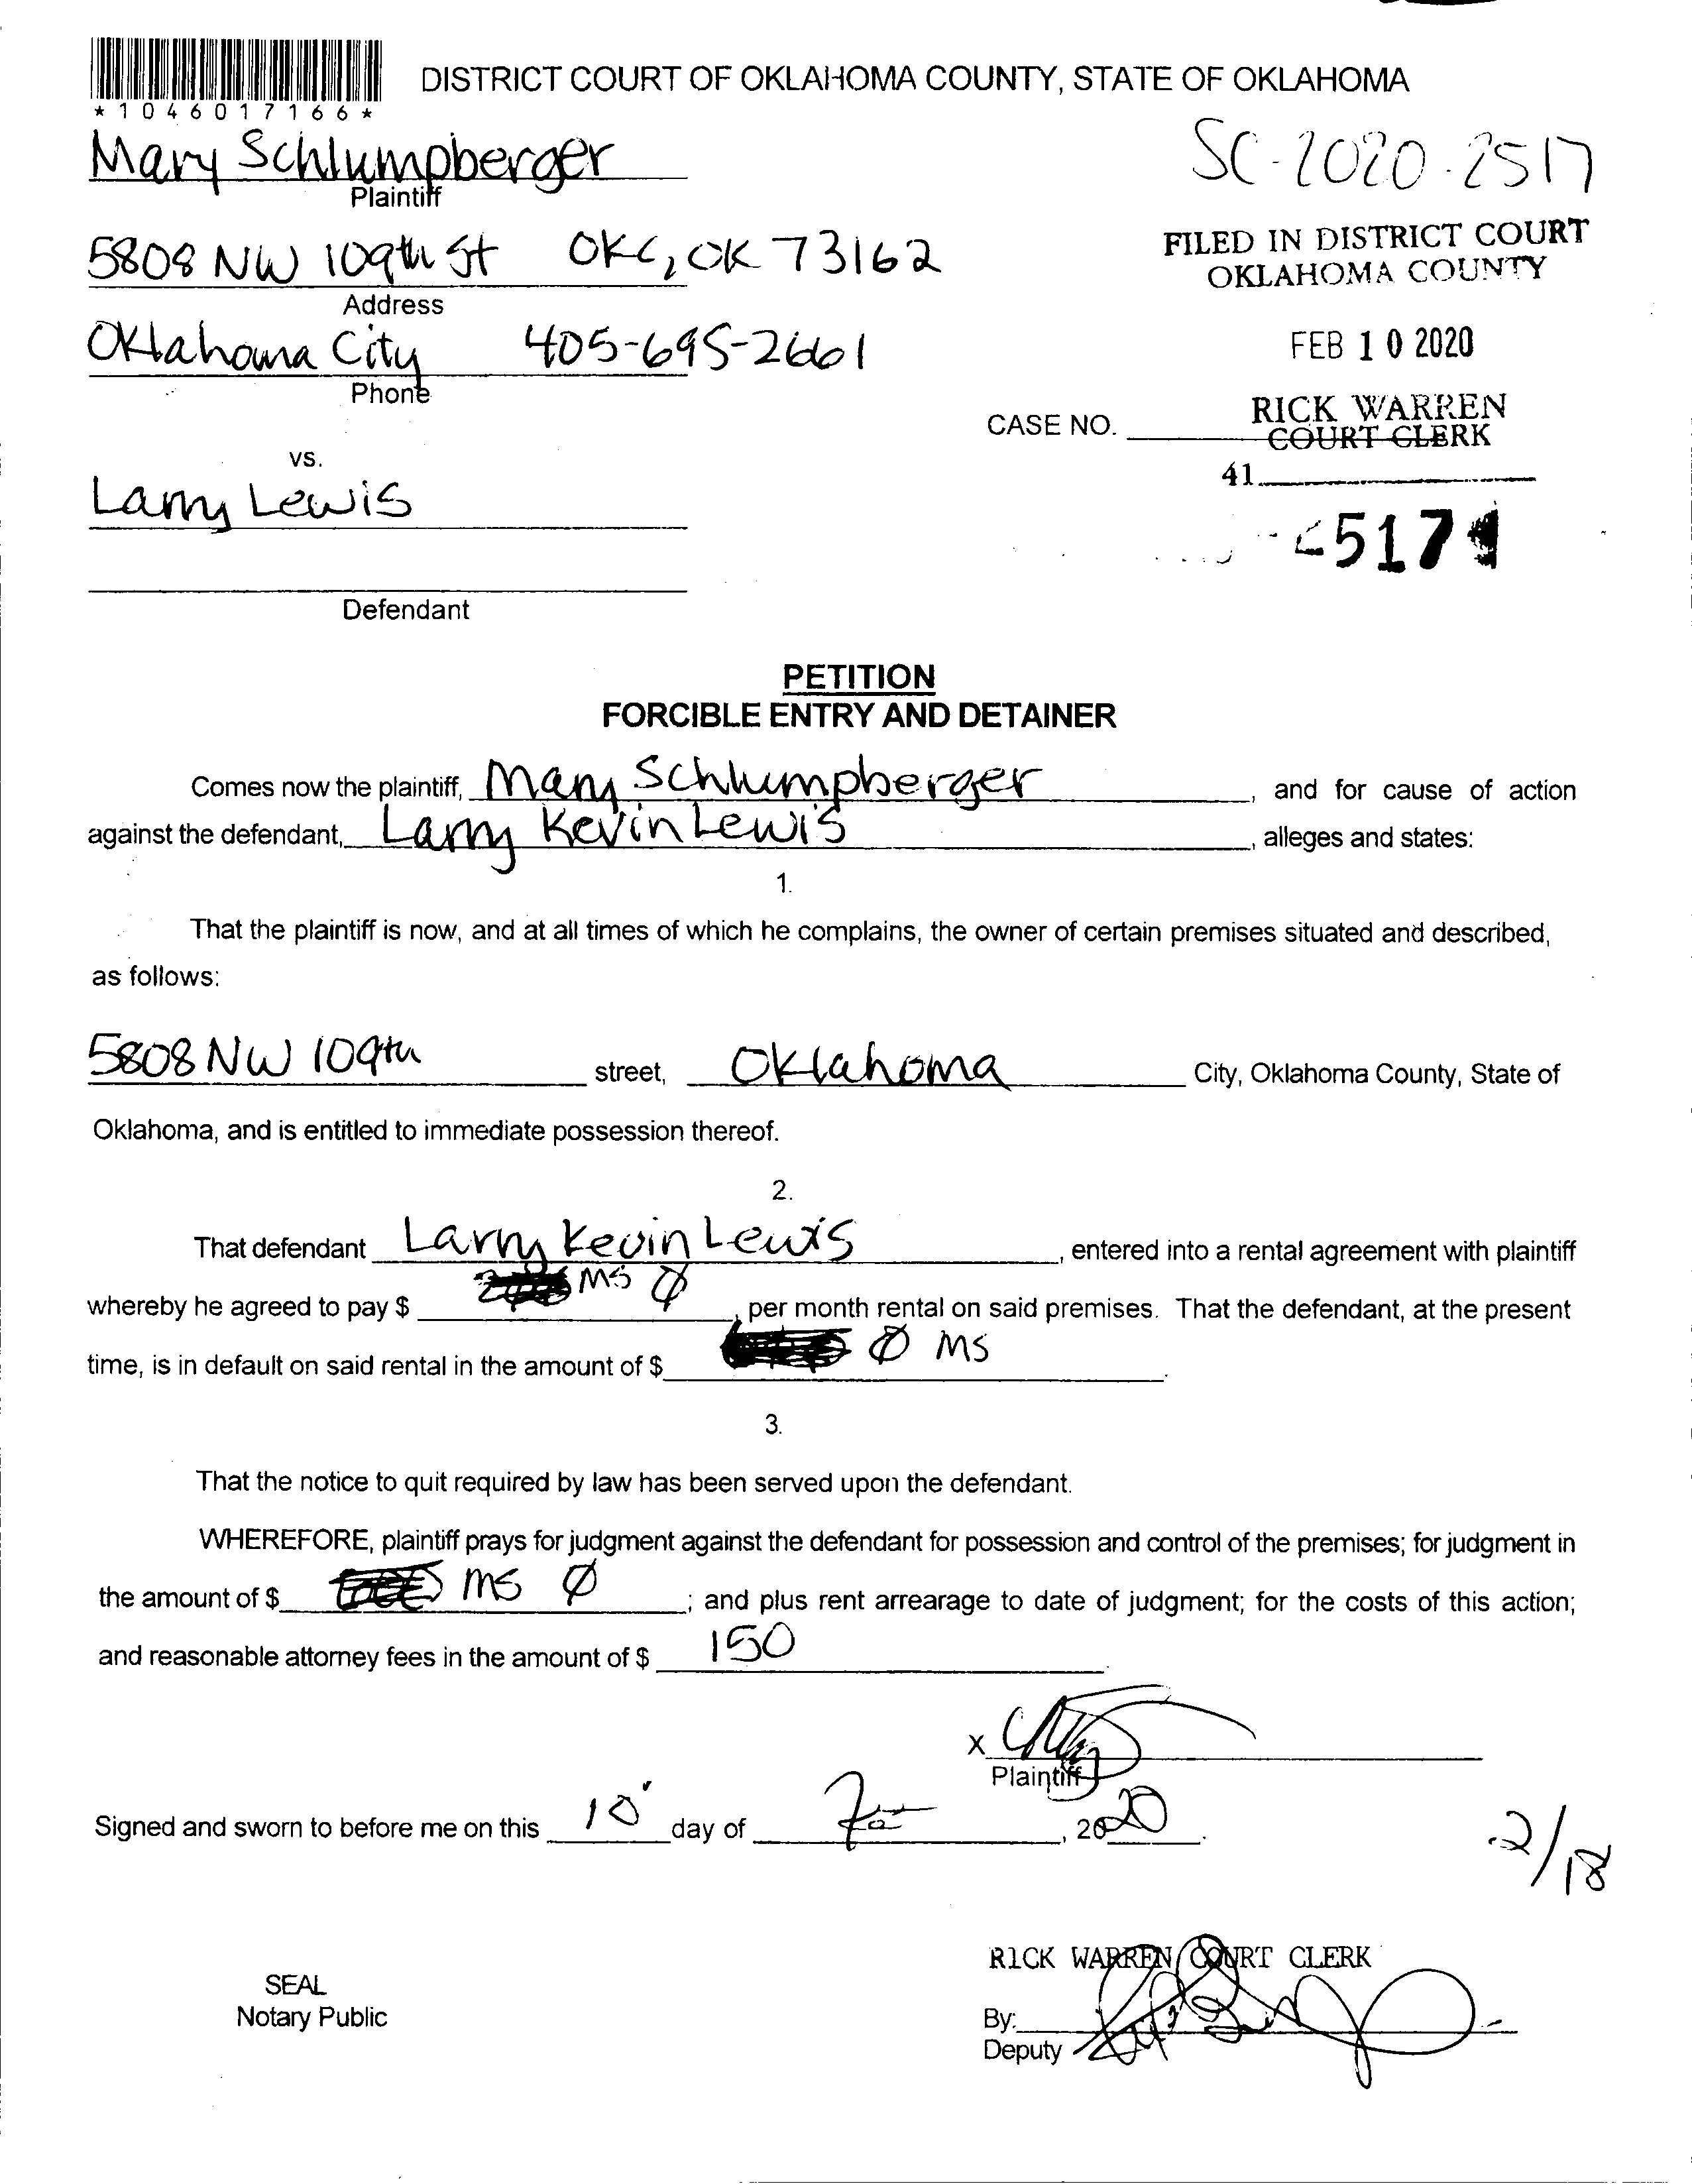 DISTRICT COURT OF OKLAHOMA COUNTY, STATE OF OKLAHOMA
*1046017166*
Mary Schlumpberger
Plaintiff
SC-2020-2517
5808 NW 109th St OKC, OK 73162
Address
FILED IN DISTRICT COURT
OKLAHOMA COUNTY
Oklahoma City 405-695-2661
Phone
FEB 10 2020
RICK WARREN
COURT CLERK
CASE NO.
41
vs.
Larry Lewis
517
Defendant
PETITION
FORCIBLE ENTRY AND DETAINER
Comes now the plaintiff, Mary Schlumpberger, and for cause of action
against the defendant, Larry Kevin Lewis, alleges and states:
1.
That the plaintiff is now, and at all times of which he complains, the owner of certain premises situated and described,
as follows:
5808 NW 109th street, Oklahoma City, Oklahoma County, State of
Oklahoma, and is entitled to immediate possession thereof.
2.
That defendant Larry Kevin Lewis, entered into a rental agreement with plaintiff
whereby he agreed to pay $ MS Ø, per month rental on said premises. That the defendant, at the present
time, is in default on said rental in the amount of $ Ø MS.
3.
That the notice to quit required by law has been served upon the defendant.
WHEREFORE, plaintiff prays for judgment against the defendant for possession and control of the premises; for judgment in
the amount of $ MS Ø; and plus rent arrearage to date of judgment; for the costs of this action;
and reasonable attorney fees in the amount of $ 150.
X
Plaintiff
Signed and sworn to before me on this 10 day of , 2020.
2/18
RICK WARREN COURT CLERK
SEAL
Notary Public
By:
Deputy